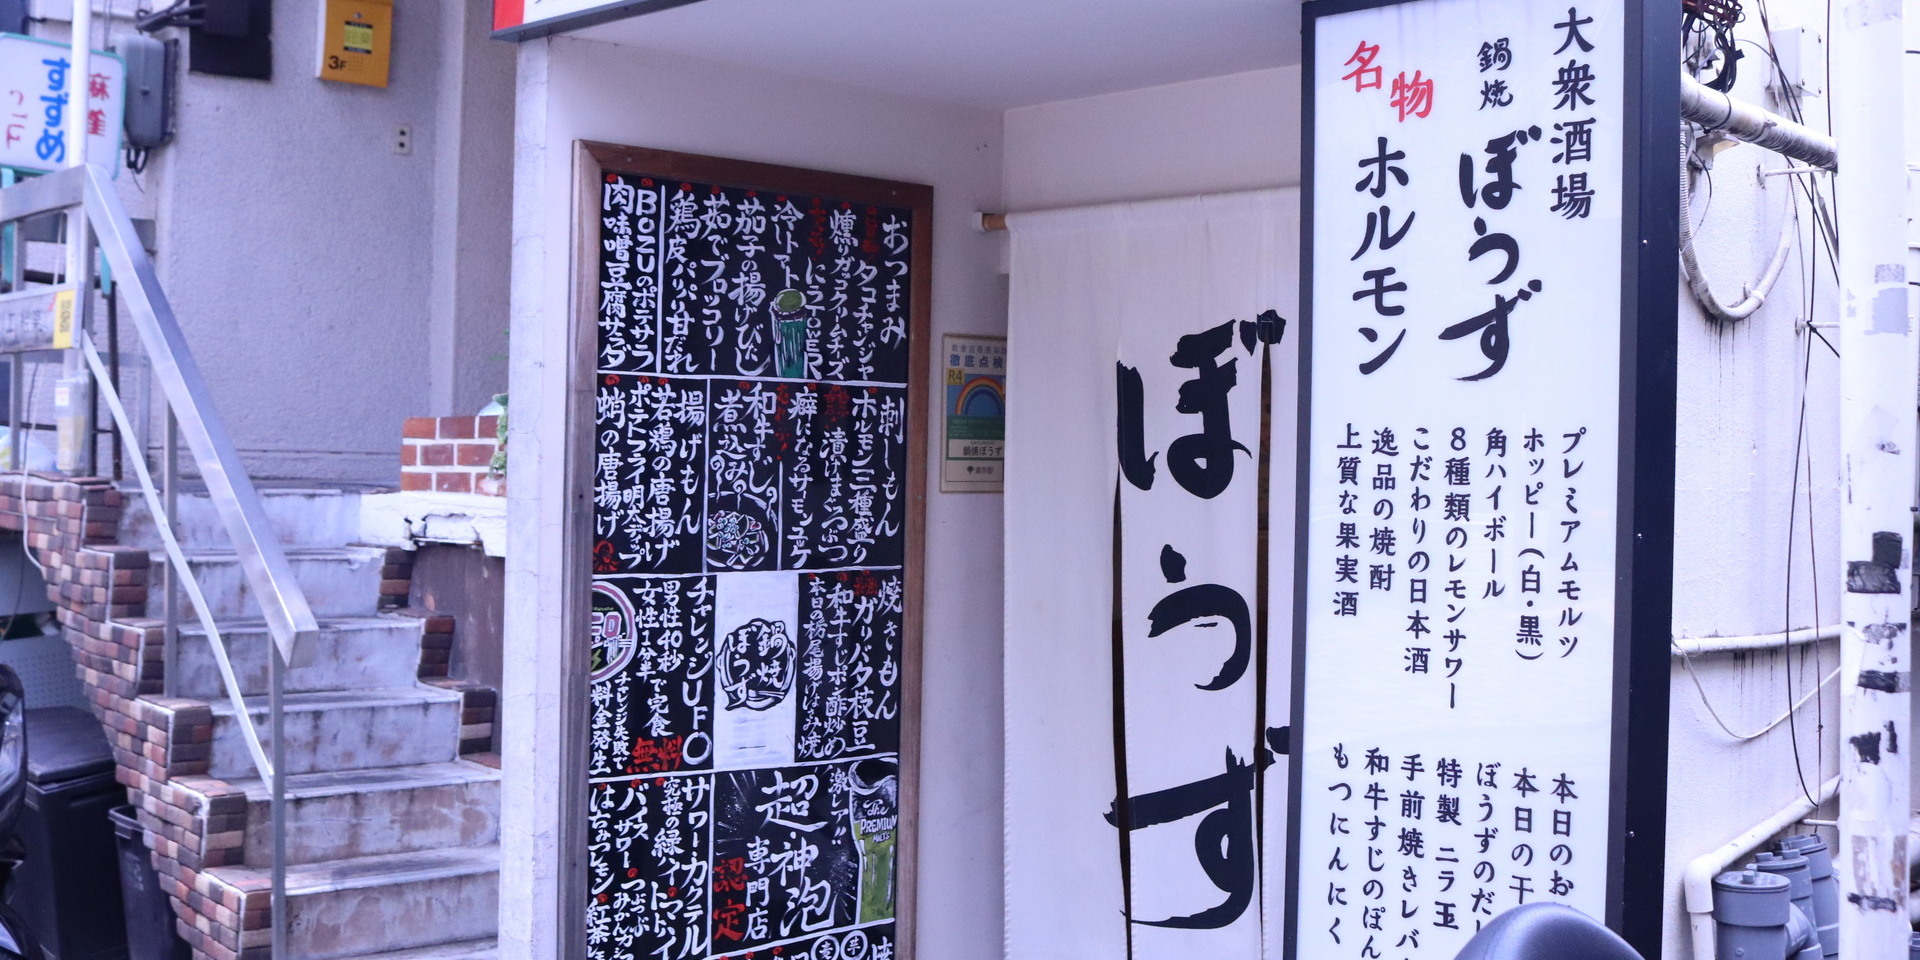 大衆酒場
鍋焼
ぼうず
名物
ホルモン
プレミアムモルツ
ホッピー(白・黒)
角ハイボール
8種類のレモンサワー
こだわりの日本酒
逸品の焼酎
上質な果実酒
本日のお
本日の干
ぼうずのだし
特製 ニラ玉
手前焼きレバ
和牛すじのぽん
もつにんにく
ぼうず
徹底点検
R4
鍋焼ぼうず
おつまみ
タコチャンジャ
燻りガッコクリームチーズ
にらTOWER
冷しトマト
茄子の揚げびたし
茹でブロッコリー
鶏皮パリパリ甘だれ
BOZUのポテサラ
肉味噌豆腐サラダ
刺しもん
ホルモン三種盛り
漬けまぐろぶつ
癖になるサーモンユッケ
和牛すじ
煮込み
揚げもん
若鶏の唐揚げ
ポテトフライ明太ディップ
蛸の唐揚げ
焼きもん
ガリバタ枝豆
和牛すじポン酢炒め
本日の栃尾揚げはさみ焼
鍋焼
ぼうず
チャレンジUFO
男性40秒
女性1分半
で完食
無料
チャレンジ失敗で
料金発生
激レア!!
超・神泡
専門店
認定
The PREMIUM MALT'S
サワーカクテル
究極の緑ハイ
トマトハイ
バイスサワー
つぶつぶみかんサワー
はちみつレモン
紅茶
麻雀
すずめ
3F